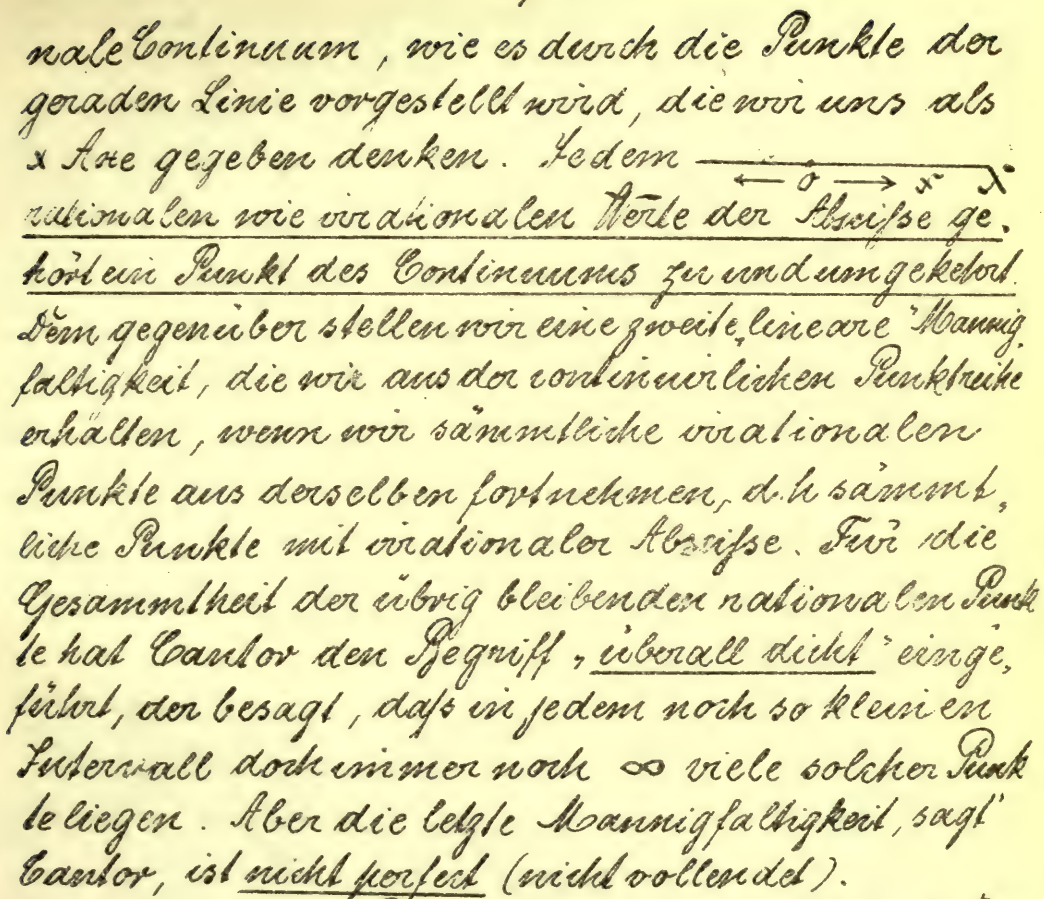 nale Continuum, wie es durch die Punkte der
geraden Linie vorgestellt wird, die wir uns als
x Axe gegeben denken. Jedem
← 0 → x X
rationalen wie irrationalen Werte der Abscisse ge-
hört ein Punkt des Continuums zu und umgekehrt.
Dem gegenüber stellen wir eine zweite „lineare" Mannig
faltigkeit, die wir aus der continuirlichen Punktreihe
erhalten, wenn wir sämmtliche irrationalen
Punkte aus derselben fortnehmen, d.h sämmt-
liche Punkte mit irrationaler Abscisse. Für die
Gesammtheit der übrig bleibenden rationalen Punk
te hat Cantor den Begriff „überall dicht" einge-
führt, der besagt, daß in jedem noch so kleinen
Intervall doch immer noch ∞ viele solcher Punk
te liegen. Aber die letzte Mannigfaltigkeit, sagt
Cantor, ist nicht perfect (nicht vollendet).